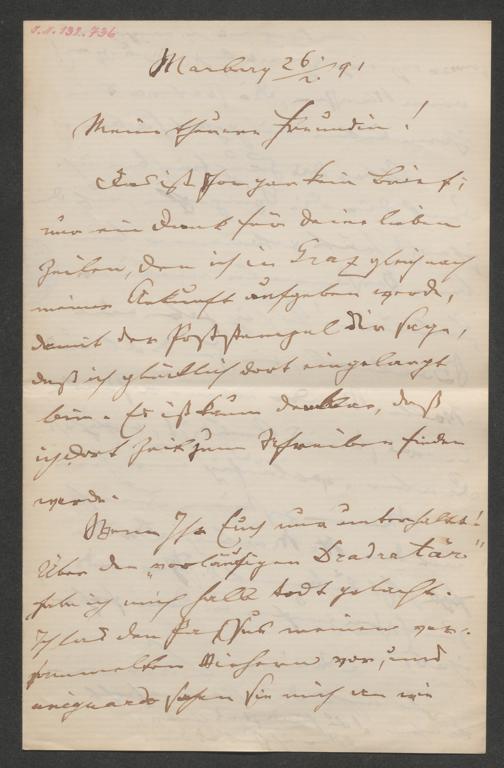 I.N. 132.736
Marburg 26./2. 91
Meine theuere Freundin!
Das ist so gar kein Brief;
nur ein Dank für deine lieben
Zeilen, den ich in Graz gleich nach
meiner Ankunft aufgeben werde,
damit der Poststempel dir sage,
daß ich glücklich dort eingelangt
bin. Es ist kaum denkbar, daß
ich dort Zeit zum Schreiben finden
werde.
Wenn Ihr Euch nur unterhaltet!
Über den „vorläufigen
habe ich mich halb todt gelacht.
Ich las den Passus meinen ver-
sammelten vor, und
sahen sie mich an wie